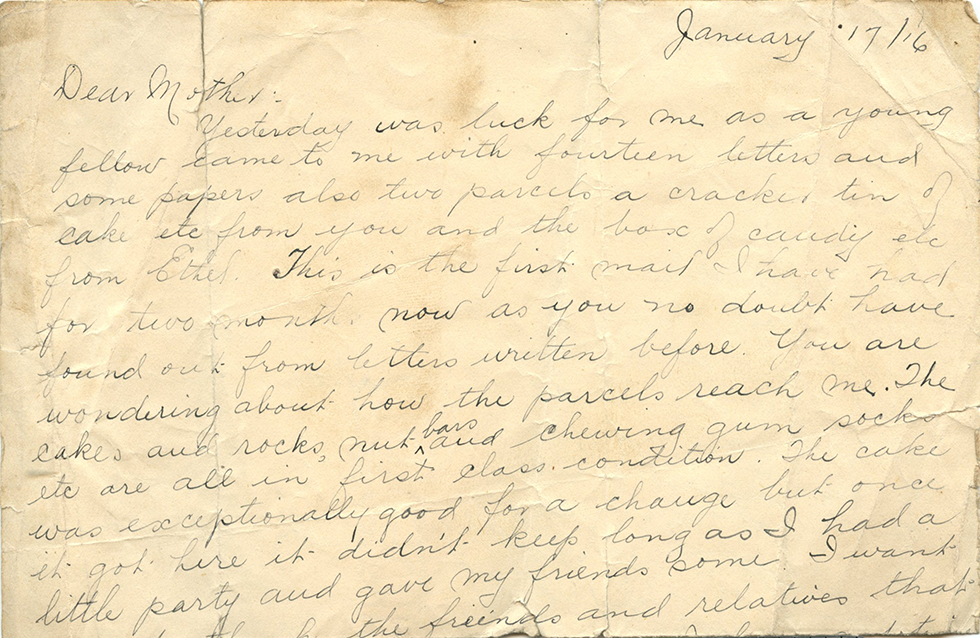 January 17/16
Dear Mother:-
Yesterday was luck for me as a young
fellow came to me with fourteen letters and
some papers also two parcels a cracker tin of
cake etc from you and the box of candy etc
from Ethel. This is the first mail I have had
for two month. now as you no doubt have
found out from letters written before. You are
wondering about how the parcels reach me. The
cakes and rocks, nut bars and chewing gum socks
etc are all in first class condition. The cake
was exceptionally good for a change but once
it got here it didn't keep long as I had a
little party and gave my friends some. I want
the friends and relatives that